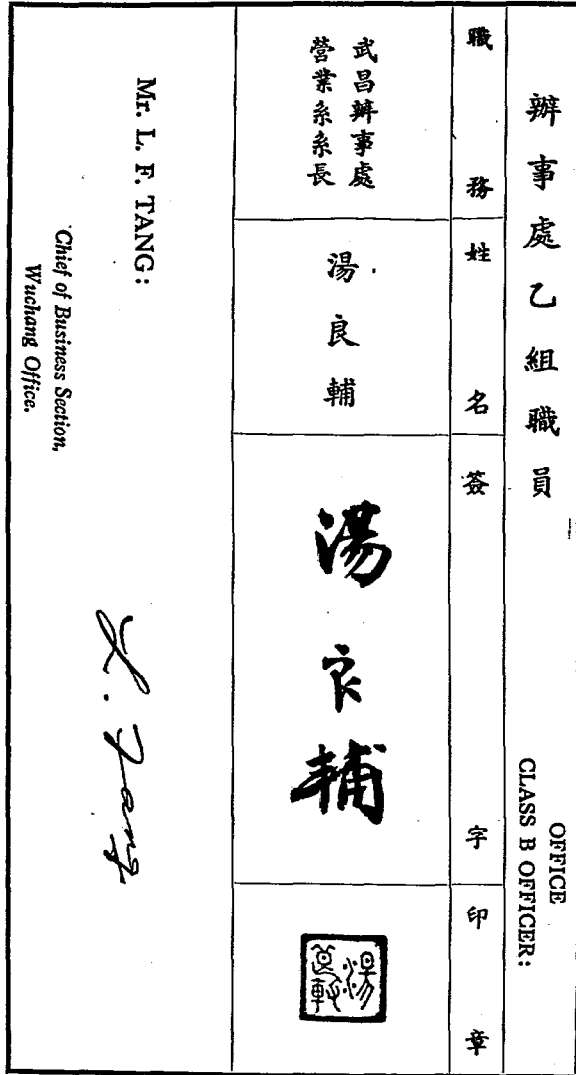 辦事處乙組職員
OFFICE
CLASS B OFFICER:
職務
姓名
簽字
印章
武昌辦事處
營業系系長
湯良輔
湯良輔
湯良輔
Mr. L. F. TANG:
Chief of Business Section,
Wuchang Office.
L. F. Tang